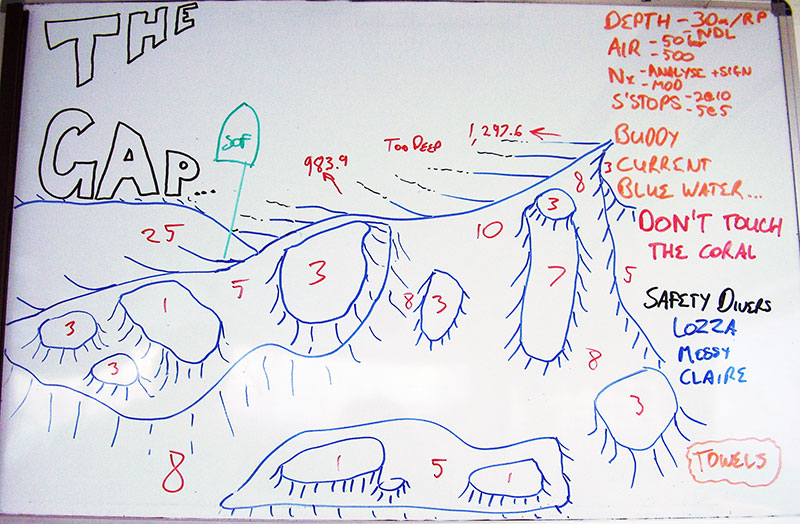 THE
GAP...
DEPTH - 30m/RP
- NDL
AIR - 50 bar
- 500
Nx - ANALYSE + SIGN
- MOD
S'STOPS - 2@10
- 5@5
BUDDY
CURRENT
BLUE WATER...
DON'T TOUCH
THE CORAL
SAFETY DIVERS
LOZZA
MESSY
CLAIRE
TOWELS
SOF
TOO DEEP
1,297.6
983.9
25
5
3
1
3
3
8
3
10
8
3
3
7
5
8
3
8
1
5
1